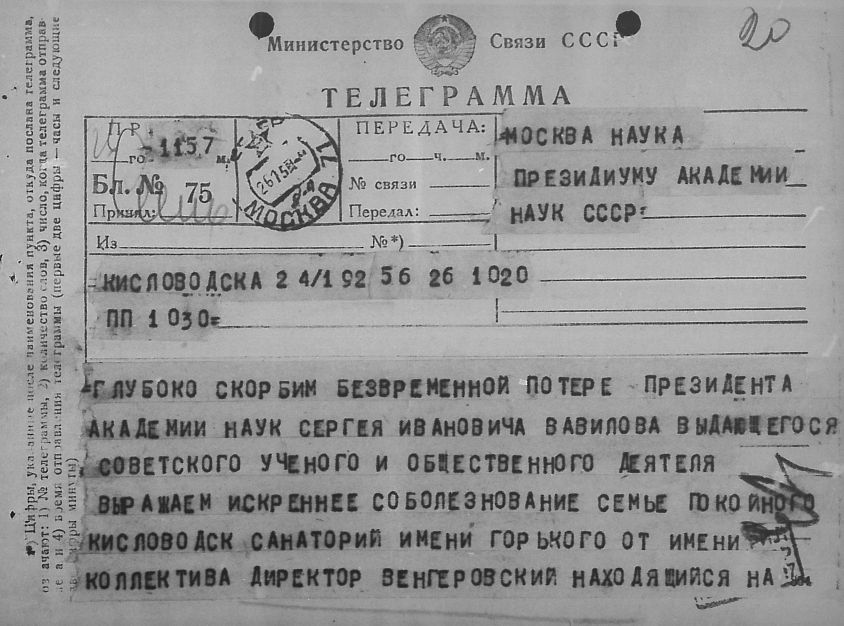 20
Министерство Связи СССР
ТЕЛЕГРАММА
ПР
-1157
го м.
Бл. № 75
Принял:
МОСКВА
ПЕРЕДАЧА:
го ч. м.
№ связи
Передал:
МОСКВА НАУКА
ПРЕЗИДИУМУ АКАДЕМИИ
НАУК СССР=
Из №*)
КИСЛОВОДСКА 24/192 56 26 1020
ПП 1030=
=ГЛУБОКО СКОРБИМ БЕЗВРЕМЕННОЙ ПОТЕРЕ ПРЕЗИДЕНТА
АКАДЕМИИ НАУК СЕРГЕЯ ИВАНОВИЧА ВАВИЛОВА ВЫДАЮЩЕГОСЯ
СОВЕТСКОГО УЧЕНОГО И ОБЩЕСТВЕННОГО ДЕЯТЕЛЯ
ВЫРАЖАЕМ ИСКРЕННЕЕ СОБОЛЕЗНОВАНИЕ СЕМЬЕ ПОКОЙНОГО
КИСЛОВОДСК САНАТОРИЙ ИМЕНИ ГОРЬКОГО ОТ ИМЕНИ
КОЛЛЕКТИВА ДИРЕКТОР ВЕНГЕРОВСКИЙ НАХОДЯЩИЙСЯ НА
*) Цифры, указанные после наименования пункта, откуда послана телеграмма,
означают: 1) № телеграммы, 2) количество слов, 3) число, когда телеграмма отправ-
лена и 4) время отправления телеграммы (первые две цифры — часы и следующие
цифры минуты)